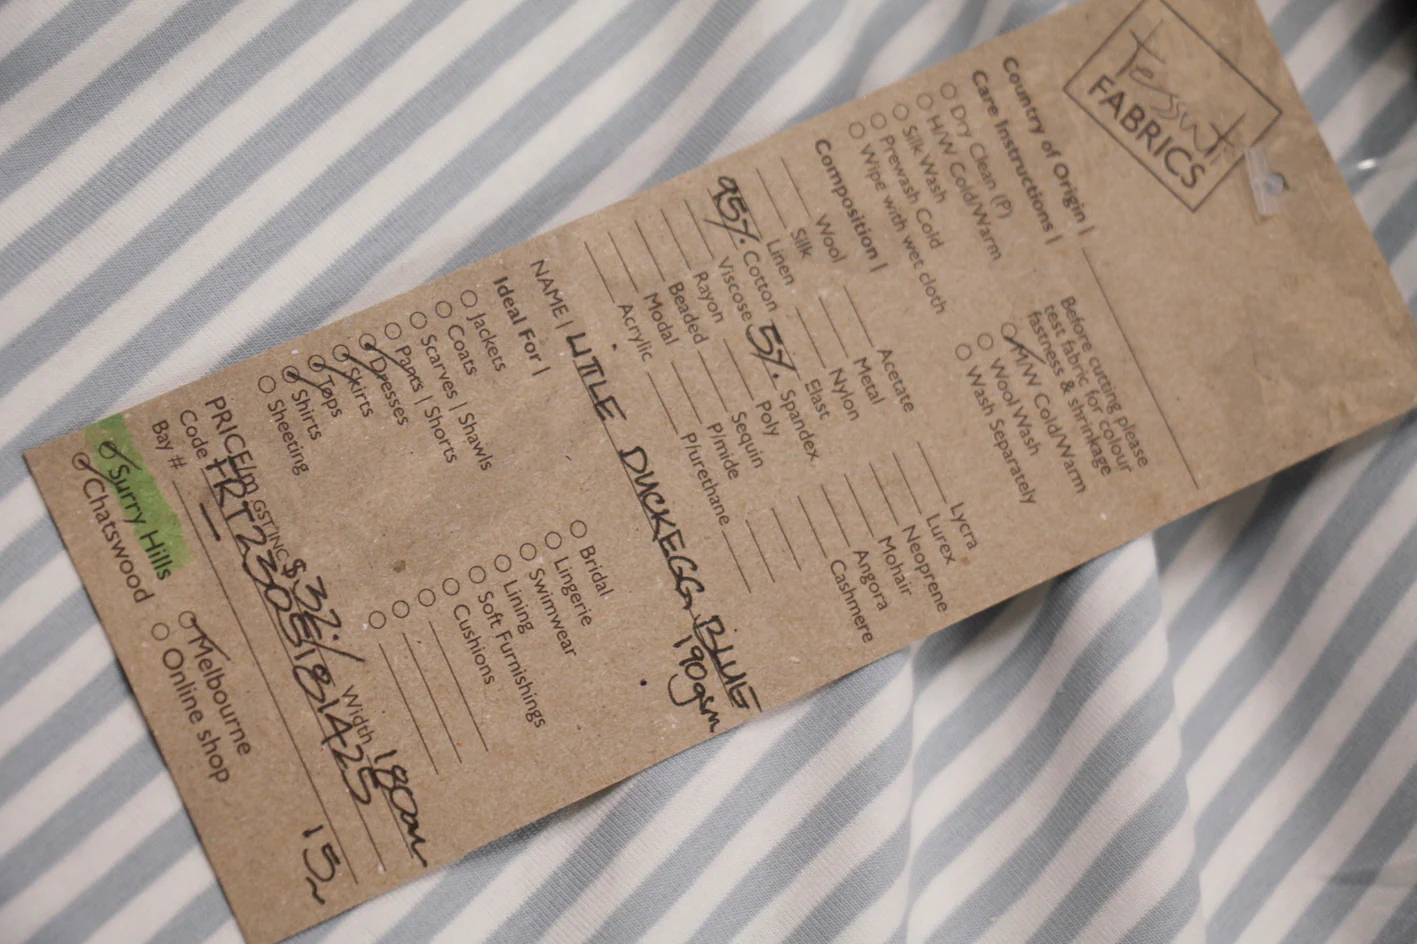 tessuti
FABRICS
Country of Origin |
Care Instructions |
Dry Clean (P)
H/W Cold/Warm
Silk Wash
Prewash Cold
Wipe with wet cloth
Before cutting please
test fabric for colour
fastness & shrinkage
M/W Cold/Warm
Wool Wash
Wash Separately
Composition |
Wool Acetate Lycra
Silk Metal Lurex
Linen Nylon Neoprene
95% Cotton Elast Mohair
Viscose 5% Spandex Angora
Rayon Poly Cashmere
Beaded Sequin
Modal P/mide
Acrylic P/urethane
NAME | LITTLE DUCKEGG BLUE
190gsm
Ideal For |
Jackets Bridal
Coats Lingerie
Scarves | Shawls Swimwear
Pants | Shorts Lining
Dresses Soft Furnishings
Skirts Cushions
Tops
Shirts
Sheeting
PRICE/m GST INC $ 32/ Width 180cm
Code
Bay # 15
Surry Hills Melbourne
Chatswood Online shop